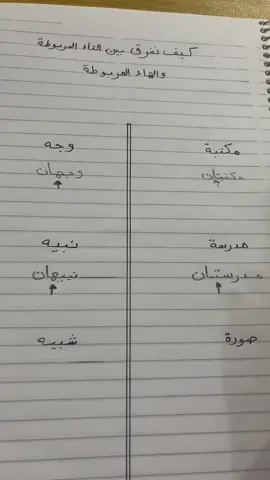 كيف نفرق بين التاء المربوطة
والهاء المربوطة
مكتبة
وجه
مكتبتان
وجهان
مدرسة
نبيه
مدرستان
نبيهان
صورة
شبيه